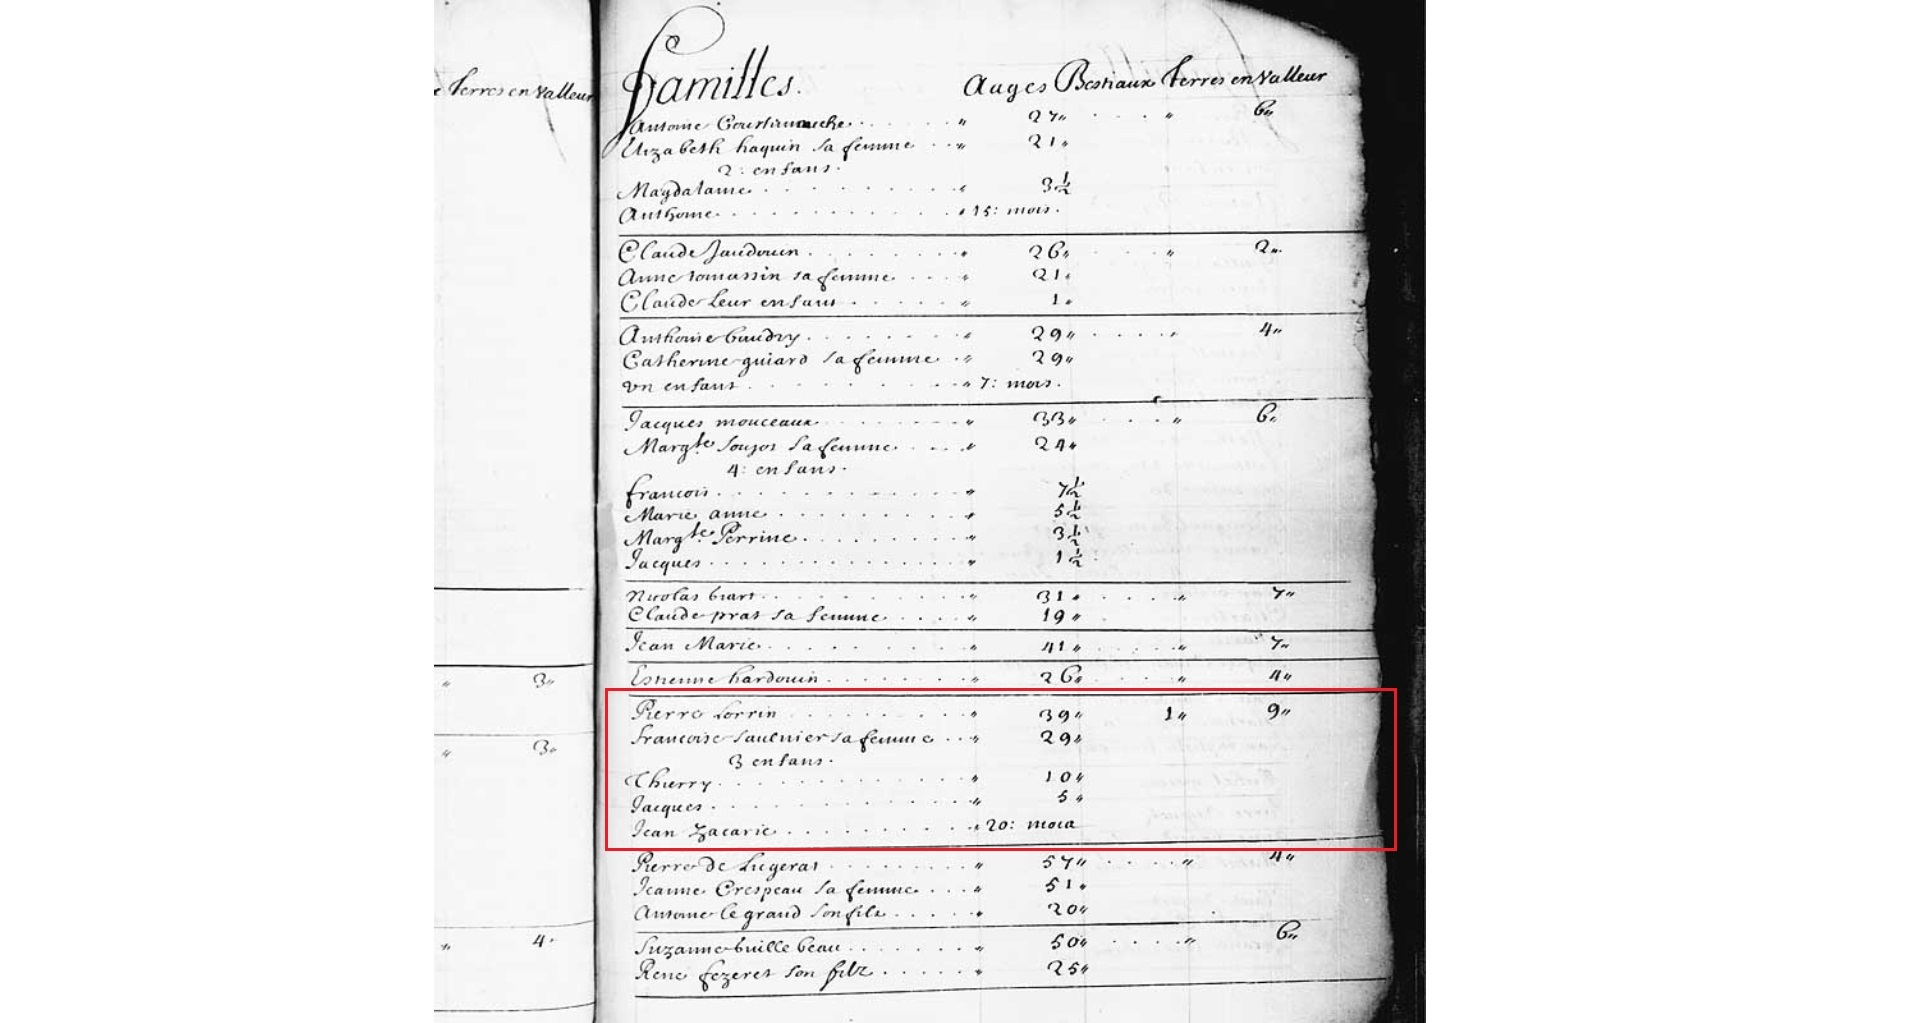 Terres en Valleur
3"
3"
4"
familles. Aages Bestiaux Terres en Valleur
Antoine Courtimanche . . . " 27" . . . " 6"
Elizabeth haquin sa femme . . " 21"
2: enfans.
Magdalaine . . . " 3 1/2
Anthoine . . . " 15: mois.
Claude Jaudouin . . . " 26" . . . " 2"
Anne tomassin sa femme . . . " 21"
Claude Leur enfant . . . " 1"
Anthoine baudry . . . " 29" . . . " 4"
Catherine guiard sa femme . . " 29"
vn enfant . . . " 7: mois.
Jacques mouceaux . . . " 33" . . . " 6"
Margte sa femme . . . " 24"
4: enfans.
francois . . . " 7 1/2
Marie anne . . . " 5 1/2
Margte Perrine . . . " 3 1/2
Jacques . . . " 1 1/2
Nicolas biart . . . " 31" . . . " 7"
Claude prat sa femme . . . " 19"
Jean Marie . . . " 41" . . . " 7"
Estienne hardouin . . . " 26" . . . " 4"
Pierre Lorrin . . . " 39" 1" 9"
francoise Saulnier sa femme . . " 29"
3 enfans.
Thierry . . . " 10"
Jacques . . . " 5"
Jean Zacarie . . . " 20: mois
Pierre de Lugerat . . . " 57" . . . " 4"
Jeanne Crespeau sa femme . . . " 51"
Antoine le grand son filz . . . " 20"
Suzanne buille beau . . . " 50" . . . " 6"
Rene fezeret son filz . . . " 25"